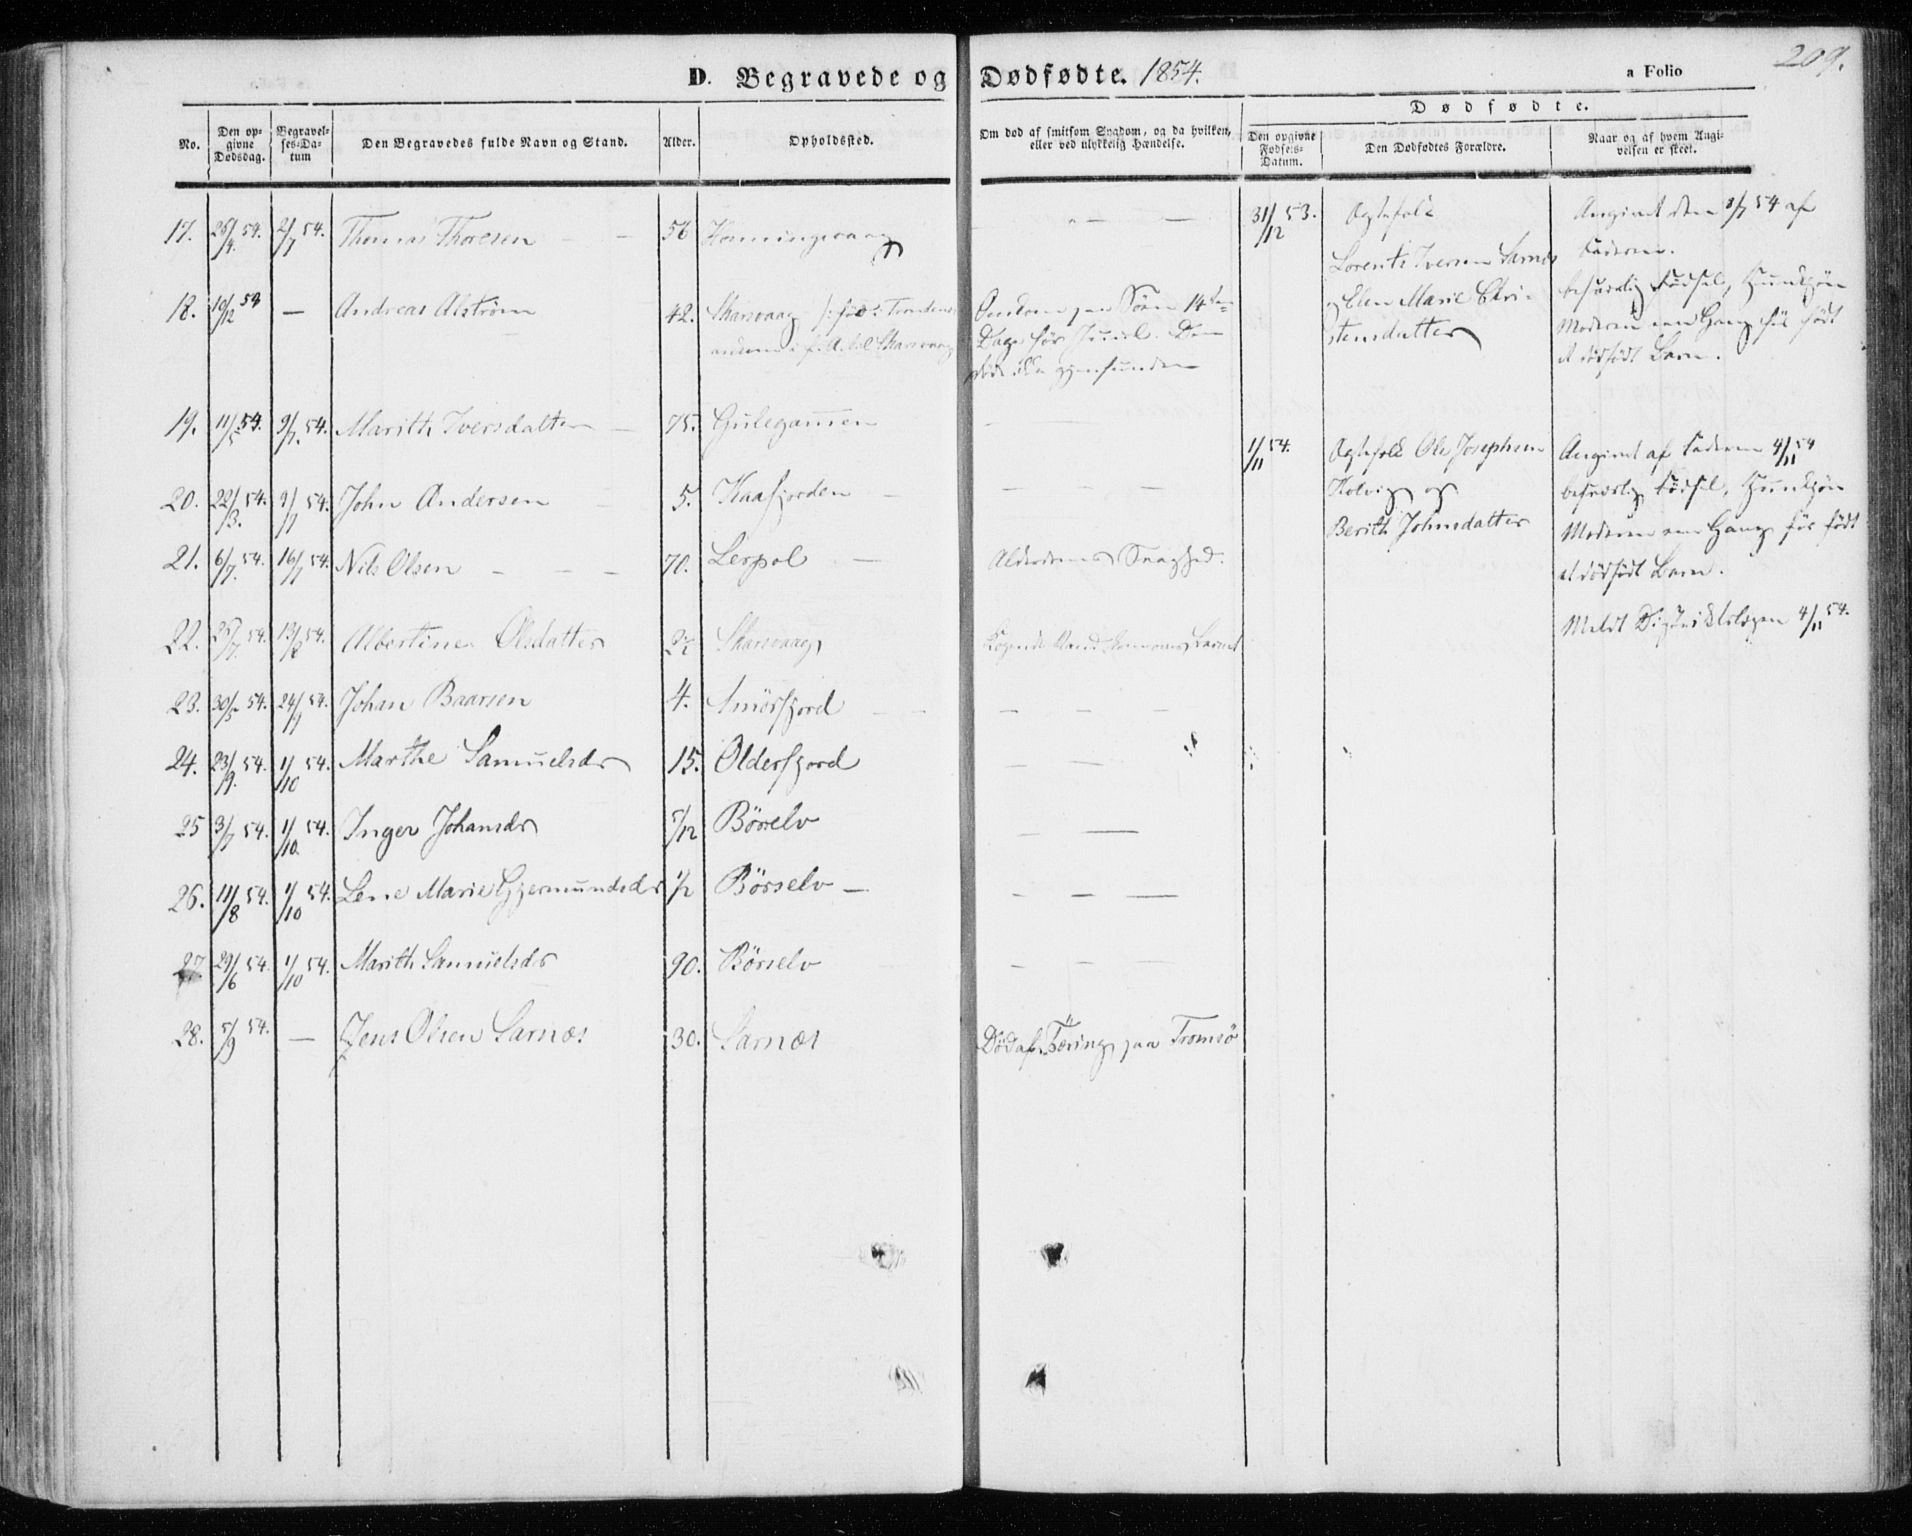 209.
D. Begravede og Dødfødte. 1854.
a Folio
No.
Den op-
givne
Dødsdag.
Begravel-
ses-Da-
tum
Den Begravedes fulde Navn og Stand.
Alder.
Opholdssted.
Om død af smitsom Sygdom, og da hvilken,
eller ved ulykkelig Hændelse.
Dødfødte.
Den opgivne
Fødsels-
Datum.
Den Dødfødtes Forældre.
Naar og af hvem Angi-
velsen er skeet.
17. 25/4 54. 2/7 54. Thomas Thoresen 56 Honningsvaag
18. 10/12 53 — Andreas Alstrøm 42. Skarsvaag
Omkom paa Søen 14
Dage før Juul.
19. 11/5 54. 9/7 54. Marith Iversdatter 75. Gulegammen
20. 22/3 54. 9/7 54. John Andersen 5. Kaafjorden
21. 6/7 54. 16/7 54. Nils Olsen 70. Lerpol — Alderdoms Svaghed.
22. 13/8 54. Albertine Olsdatter Skarsvaag
23. 30/5 54. 24/9 54. Johan Baarsen 4. Smörfjord
24. 23/9 54. 1/10 54. Marthe Samuelsdr 15. Olderfjord
25 3/7 54. 1/10 54. Inger Johansdr 5/12 Börselv
26. 11/8 54. 1/10 54. Lene Marie Gjermundsdr 1/2 Börselv —
27 29/6 54. 1/10 54. Marith Samuelsdr 90. Börselv
28. 5/9 54. — Jens Olsen Sarnæs 30. Sarnæs Död af Tæring paa Tromsö
31/12 53. Ægtefolk
Lorents Iversen Sarnæs
og Elen Marie Chri-
stensdatter
Angivet den 2/7 54 af
Faderen.
besværlig Fødsel, Hunkjøn
Moderen een Gang før født
et dødfødt Barn.
1/11 54. Ægtefolk Ole Josephsen
Kolvig og
Berith Johnsdatter
Angivet af Faderen 4/11 54
besværlig Fødsel, Hunkjøn
Moderen een Gang før født
et dødfødt Barn.
Meldt Districtslægen 4/11 54.